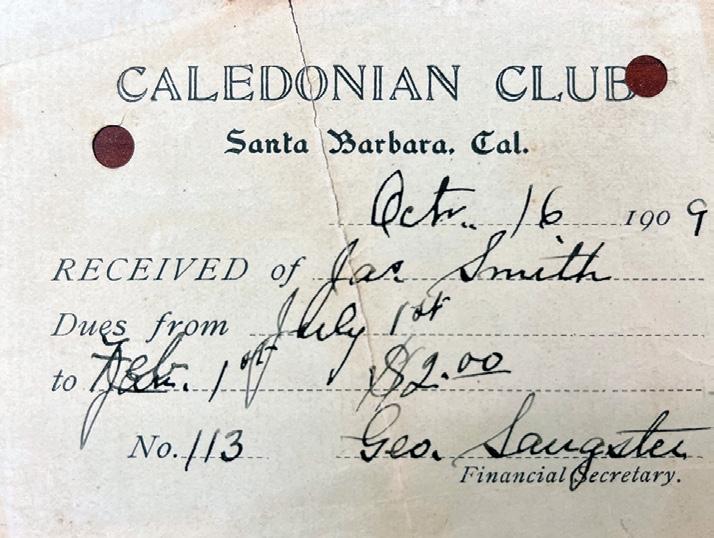 CALEDONIAN CLUB
Santa Barbara, Cal.
Oct. 16 1909
RECEIVED of Jas Smith
Dues from July 1st
to 1st $2.00
No. 113 Geo. Sangster
Financial Secretary.